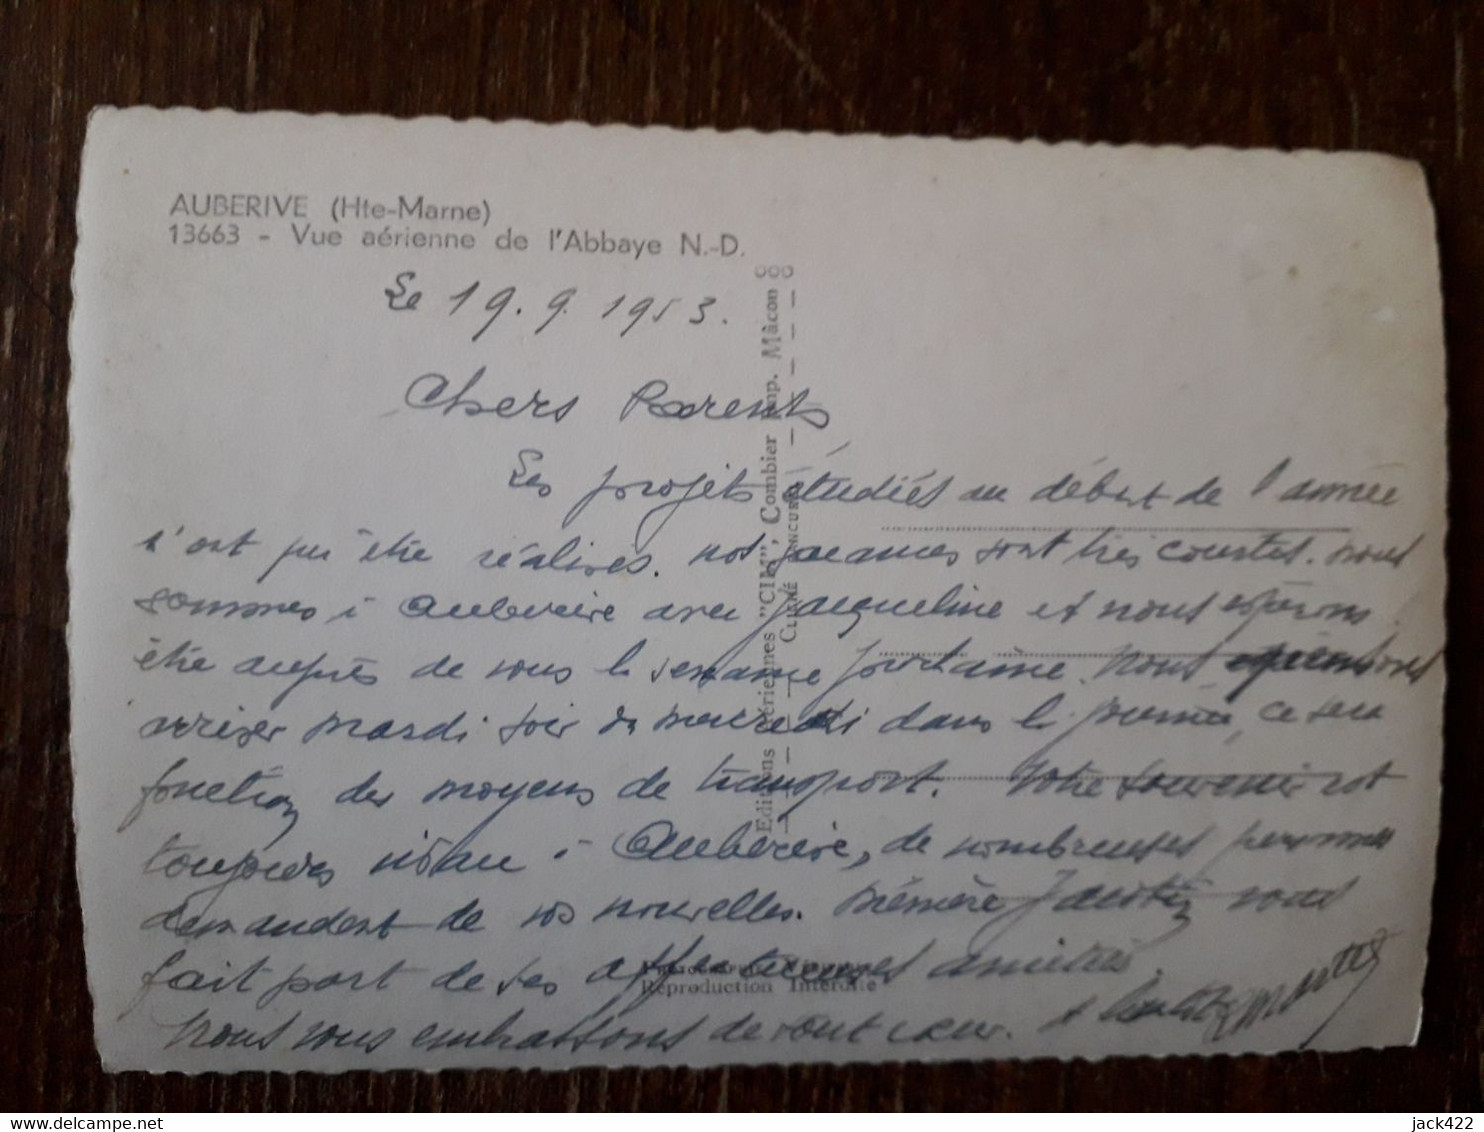 AUBERIVE (Hte-Marne)
13663 - Vue aérienne de l'Abbaye N.-D.
Le 19.9.1953.
Chers Parents
Les projets étudiés au début de l'année
n'ont pu être réalisés. nos vacances sont très courtes. nous
sommes à Auberive avec Jacqueline et nous espérons
être auprès de vous la semaine prochaine. Nous
arriver mardi soir ou mercredi dans la journée, ce sera
fonction des moyens de transport. Votre souvenir est
toujours à Auberive, de nombreuses personnes
demandent de vos nouvelles. vous
fait part de ses affectueuses amitiés.
Nous vous embrassons de tout cœur.
Editions aériennes "CIM", Combier Imp. Mâcon
CLICHÉ
Reproduction Interdite
delcampe.net
jack422